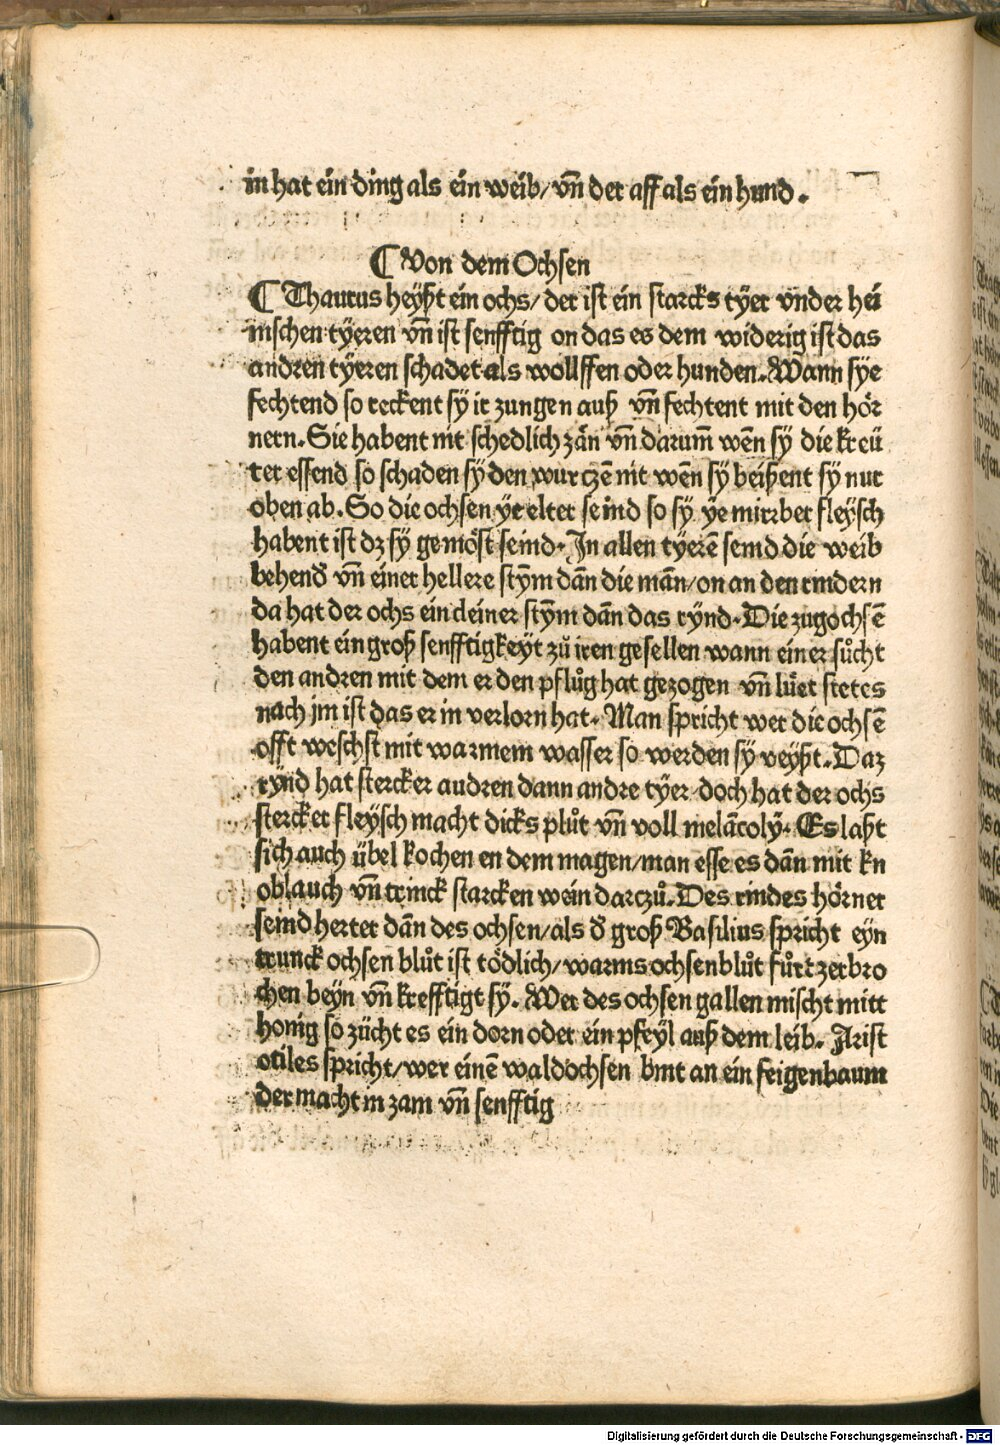 in hat ein ding als ein weib/ vñ der aff als ein hund.
¶ Von dem Ochsen
¶ Thaurus heyßt ein ochs/ der ist ein starcks tÿer vnder hei
mschen tÿeren vñ ist senfftig on das es dem widerig ist das
andren tÿeren schadet als wollffen oder hunden. Wann sÿe
fechtend so reckent sÿ ir zungen auß vñ fechtent mit den hör
nern. Sie habent nit schedlich zän vñ darum̄ wen̄ sÿ die kreü
ter essend so schaden sÿ den wurczē nit wen̄ sÿ beißent sÿ nur
oben ab. So die ochsen ÿe elter seind so sÿ ÿe mirrber fleÿsch
habent ist dz sÿ gemöst seind. In allen tÿerē semd die weib
behend vñ einer hellere stÿm dan̄ die man̄/ on an den rindern
da hat der ochs ein cleiner stÿm dan̄ das rÿnd. Die zugochsē
habent ein groß senfftigkeyt zů iren gesellen wann einer sůcht
den andren mit dem er den pflůg hat gezogen vñ lüet stetes
nach jm ist das er in verlorn hat. Man spricht wer die ochsē
offt weschst mit warmem wasser so werden sÿ veyßt. Daz
rÿnd hat stercker audren dann andre tÿer doch hat der ochs
stercker fleÿsch macht dicks plůt vñ voll melācolÿ. Es laßt
sich auch übel kochen en dem magen/ man esse es dan̄ mit kn
oblauch vñ trinck starcken wein darczů. Des rindes hörner
seind herter dan̄ des ochsen/ als d' groß Basilius spricht eyn
trunck ochsen blůt ist tödlich/ warms ochsenblůt fůrt zerbro
chen beÿn vñ krefftigt sÿ. Wer des ochsen gallen mischt mitt
honig so zücht es ein dorn oder ein pfeÿl auß dem leib. Arist
otiles spricht/ wer einē waldochsen bint an ein feigenbaum
der macht in zam vñ senfftig
Digitalisierung gefördert durch die Deutsche Forschungsgemeinschaft - DFG